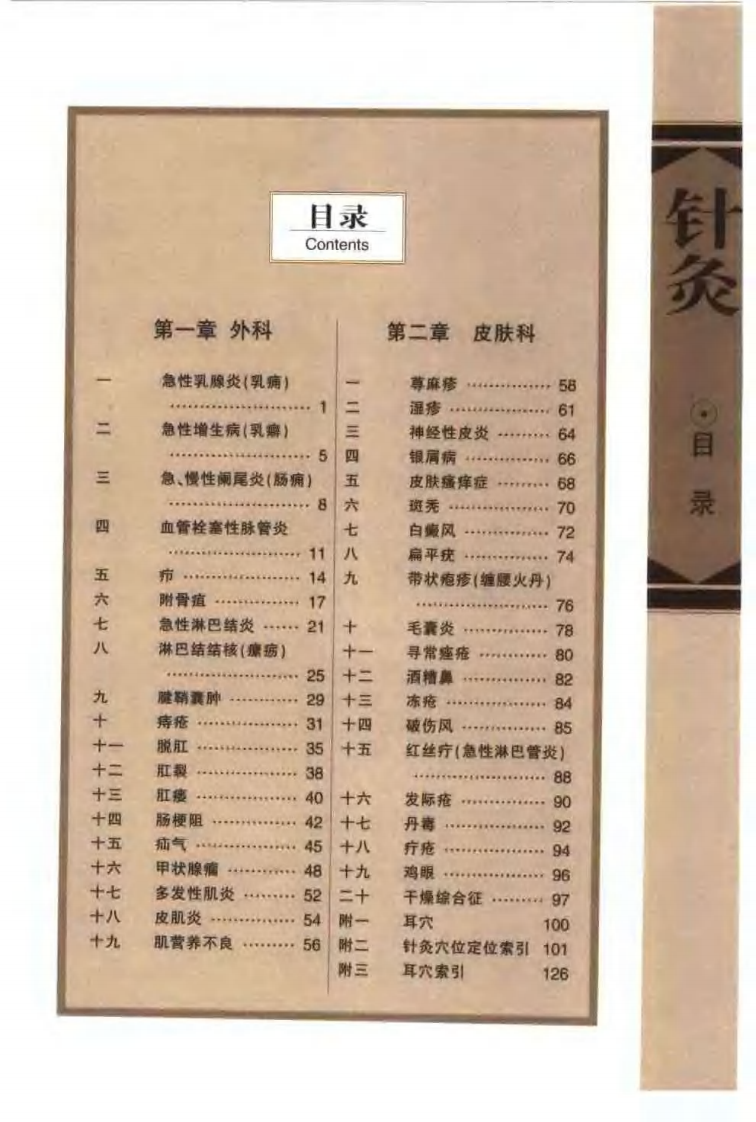 目录
Contents
第一章 外科
一 急性乳腺炎(乳痈)
························ 1
二 急性增生病(乳癖)
························ 5
三 急、慢性阑尾炎(肠痈)
························ 8
四 血管栓塞性脉管炎
······················ 11
五 疖 ···················· 14
六 附骨疽 ·············· 17
七 急性淋巴结炎 ······ 21
八 淋巴结结核(瘰疬)
······················ 25
九 腱鞘囊肿 ············ 29
十 痔疮 ················· 31
十一 脱肛 ················· 35
十二 肛裂 ················· 38
十三 肛瘘 ················· 40
十四 肠梗阻 ·············· 42
十五 疝气 ················· 45
十六 甲状腺瘤 ············ 48
十七 多发性肌炎 ········· 52
十八 皮肌炎 ·············· 54
十九 肌营养不良 ········· 56
第二章 皮肤科
一 荨麻疹 ·············· 58
二 湿疹 ················· 61
三 神经性皮炎 ········· 64
四 银屑病 ·············· 66
五 皮肤瘙痒症 ········· 68
六 斑秃 ················· 70
七 白癜风 ·············· 72
八 扁平疣 ·············· 74
九 带状疱疹(缠腰火丹)
······················ 76
十 毛囊炎 ·············· 78
十一 寻常痤疮 ············ 80
十二 酒糟鼻 ·············· 82
十三 冻疮 ················· 84
十四 破伤风 ·············· 85
十五 红丝疔(急性淋巴管炎)
······················ 88
十六 发际疮 ·············· 90
十七 丹毒 ················· 92
十八 疔疮 ················· 94
十九 鸡眼 ················· 96
二十 干燥综合征 ········· 97
附一 耳穴 100
附二 针灸穴位定位索引 101
附三 耳穴索引 126
针灸
目录